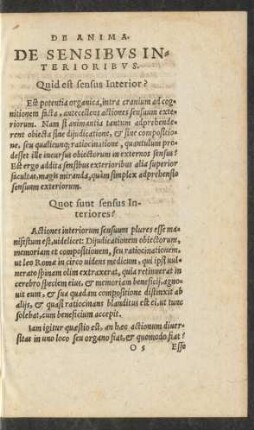 DE ANIMA.
DE SENSIBVS IN-
TERIORIBVS.
Quid est sensus Interior?
Est potentia organica, intra cranium ad cog-
nitionem facta, antecellens actiones sensuum exte-
riorum. Nam si animantia tantum adprehende-
rent obiecta sine dijudicatione, & sine compositione,
seu qualicunq; ratiocinatione, quantulum pro-
desset ille incursus obiectorum in externos sensus?
Est ergo addita sensibus exterioribus alia superior
facultas, magis miranda, quàm simplex adprehensio
sensuum exteriorum.
Quot sunt sensus In-
teriores?
Actiones interiorum sensuum plures esse ma-
nifestum est, videlicet: Dijudicationem obiectorum,
memoriam et compositionem, seu ratiocinationem,
ut leo Romæ in circo uidens medicum, qui ipsi uul-
nerato spinam olim extraxerat, quia retinuerat in
cerebro speciem eius, & memoriam beneficij, ag-
nouit eum, & sua quadam compositione distinxit ab
alijs, & quasi ratiocinans blanditus est ei, ut tunc
solebat, cum beneficium accepit.
Iam igitur quæstio est, an hæc actionum diuer-
sitas in uno loco seu organo fiat, & quomodo fiat?
O 5 Esse